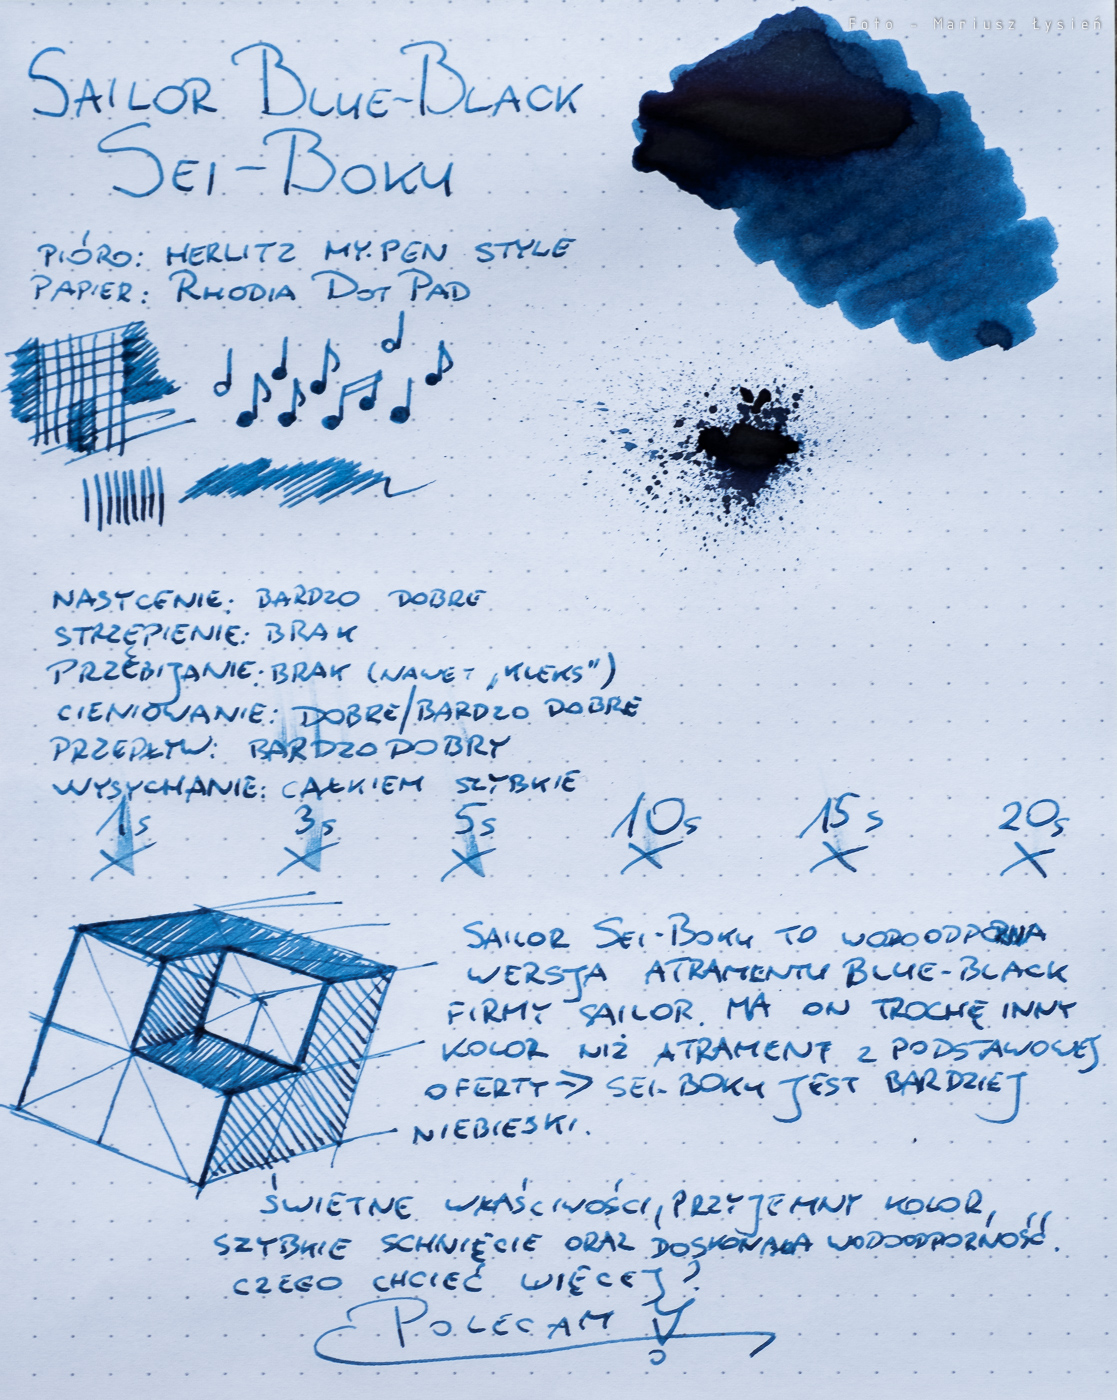 Foto - Mariusz Łysień
SAILOR BLUE-BLACK
SEI-BOKU
PIÓRO: HERLITZ MY.PEN STYLE
PAPIER: RHODIA DOT PAD
NASYCENIE: BARDZO DOBRE
STRZĘPIENIE: BRAK
PRZEBIJANIE: BRAK (NAWET „KLEKS")
CIENIOWANIE: DOBRE/BARDZO DOBRE
PRZEPŁYW: BARDZO DOBRY
WYSYCHANIE: CAŁKIEM SZYBKIE
1s 3s 5s 10s 15s 20s
SAILOR SEI-BOKU TO WODOODPORNA
WERSJA ATRAMENTU BLUE-BLACK
FIRMY SAILOR. MA ON TROCHĘ INNY
KOLOR NIŻ ATRAMENT Z PODSTAWOWEJ
OFERTY => SEI-BOKU JEST BARDZIEJ
NIEBIESKI.
ŚWIETNE WŁAŚCIWOŚCI, PRZYJEMNY KOLOR,
SZYBKIE SCHNIĘCIE ORAZ DOSKONAŁA WODOODPORNOŚĆ.
CZEGO CHCIEĆ WIĘCEJ?
POLECAM!